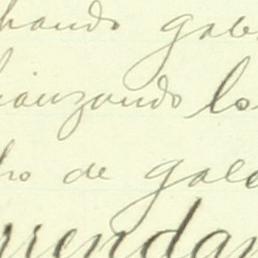 hando gale
ianzando lo
ho de gale
rrendam